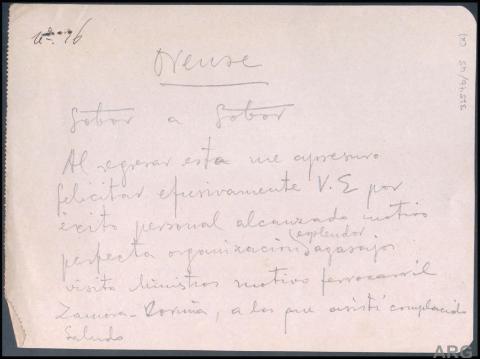 Nº 16
Orense
Gobor a Gobor
Al regresar esta me apresuro
felicitar efusivamente V.E por
éxito personal alcanzado motivo
esplendor
perfecta organización agasajos
visita Ministros motivo ferrocarril
Zamora-Coruña, a los que asistí complacido
Saludo
ARG